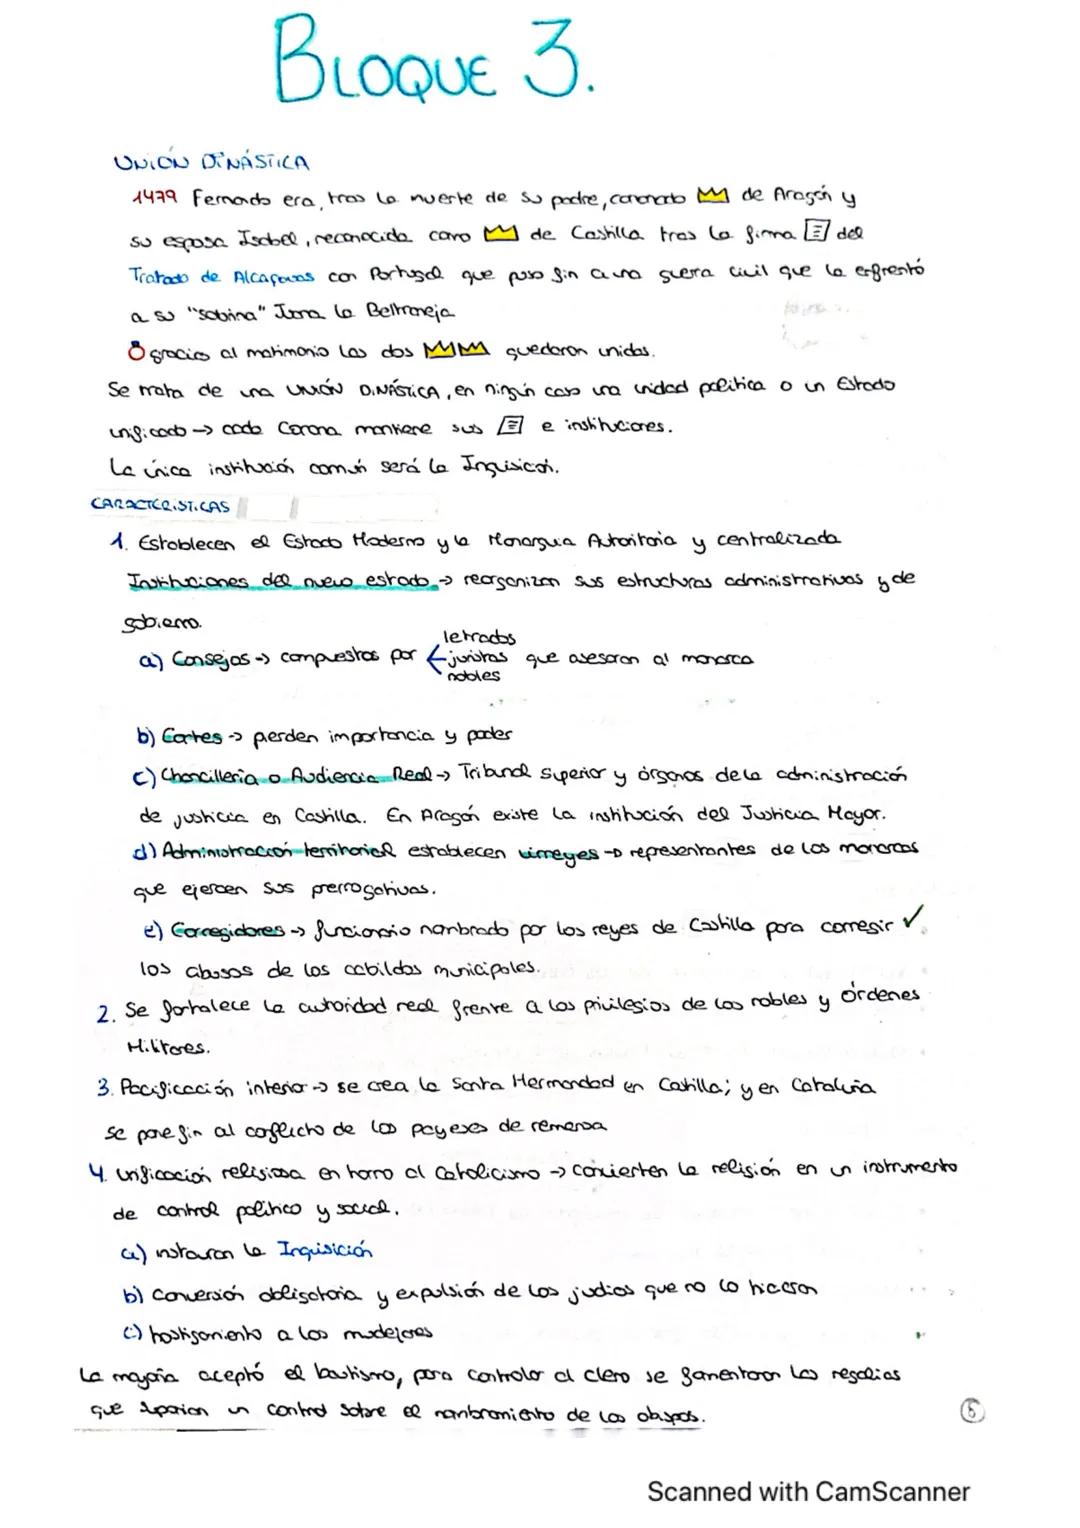 BLOQUE 3.
UNIÓN DINÁSTICA
1479 Fernando era, tras la muerte de su padre, coronado de Aragón y
su esposa Isabel, reconocida como de Castilla tras la firma del
Tratado de Alcaçovas con Portugal que puso fin a una guerra civil que la enfrentó
a su "sobrina" Juana la Beltraneja
gracias al matrimonio las dos quedaron unidas.
Se trata de una UNIÓN DINÁSTICA, en ningún caso una unidad política o un Estado
unificado → cada Corona mantiene sus e instituciones.
La única institución común será la Inquisición.
CARACTERÍSTICAS
1. Establecen el Estado Moderno y la Monarquía Autoritaria y centralizada
Instituciones del nuevo estado → reorganizan sus estructuras administrativas y de
gobierno.
letrados
a) Consejos → compuestos por juristas que asesoran al monarca
nobles
b) Cortes → pierden importancia y poder
c) Chancillería o Audiencia Real → Tribunal superior y órganos de la administración
de justicia en Castilla. En Aragón existe la institución del Justicia Mayor.
d) Administración territorial establecen virreyes → representantes de los monarcas
que ejercen sus prerrogativas.
e) Corregidores → funcionario nombrado por los reyes de Castilla para corregir ✓
los abusos de los cabildos municipales.
2. Se fortalece la autoridad real frente a los privilegios de los nobles y órdenes
Militares.
3. Pacificación interior → se crea la Santa Hermandad en Castilla; y en Cataluña
se pone fin al conflicto de los payeses de remensa
4. Unificación religiosa en torno al Catolicismo → convierten la religión en un instrumento
de control político y social.
a) instauran la Inquisición
b) Conversión obligatoria y expulsión de los judíos que no lo hicieron
c) hostigamiento a los mudejares
La mayoría aceptó el bautismo, para controlar al clero se fomentaron las regalías
que suponían un control sobre el nombramiento de los obispos.
Scanned with CamScanner